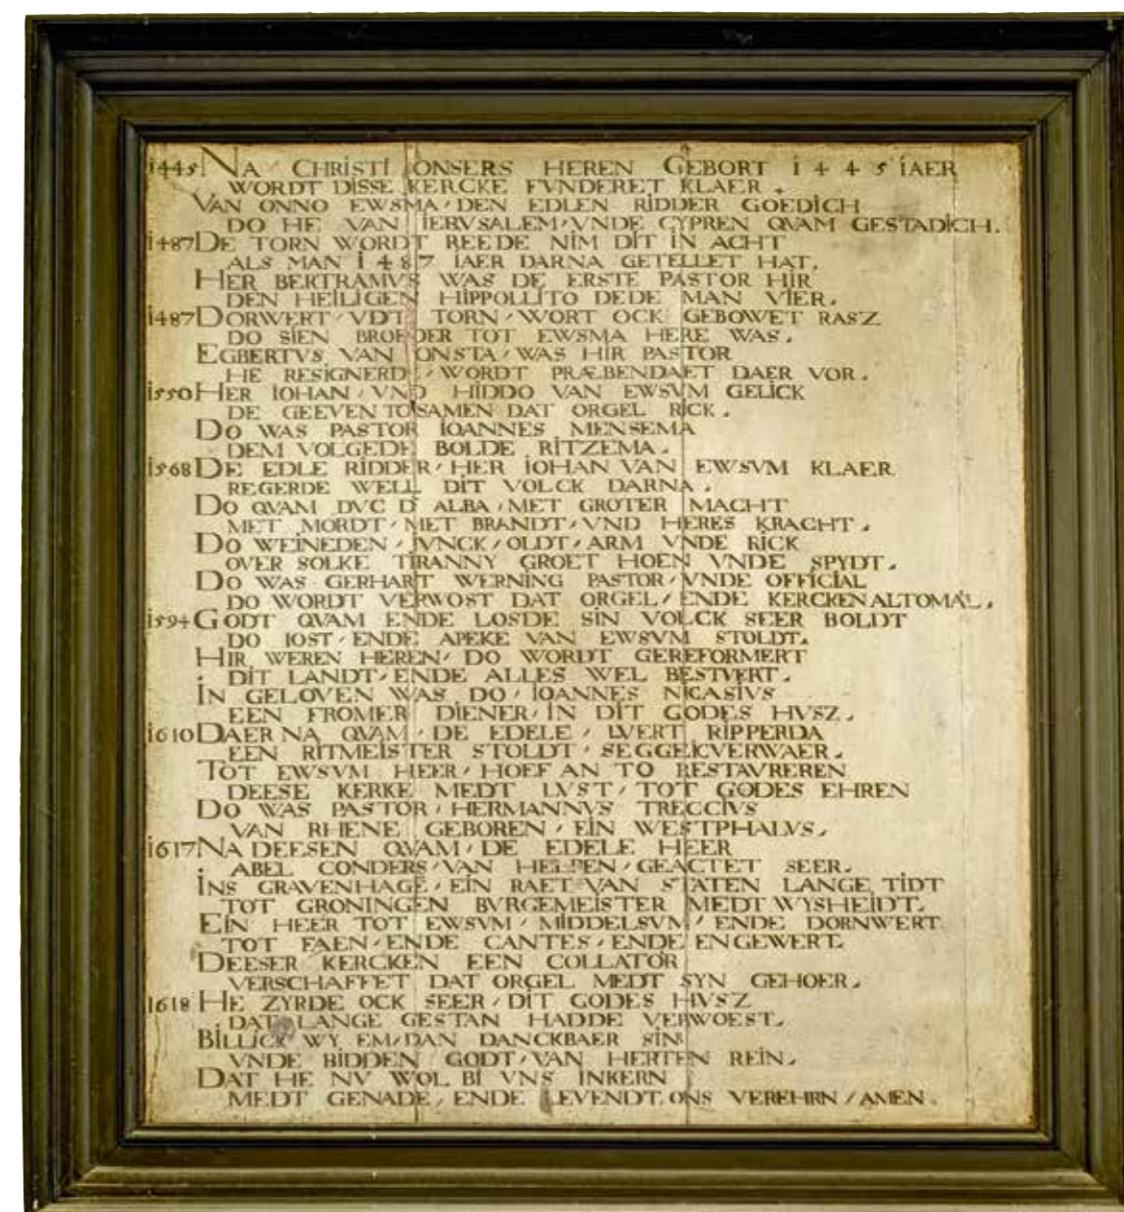 1445 NA CHRISTI ONSERS HEREN GEBORT 1 4 4 5 IAER
WORDT DISSE KERCKE FVNDERET KLAER.
VAN ONNO EWSMA/DEN EDLEN RIDDER GOEDICH
DO HE VAN IERVSALEM/VNDE CYPREN QVAM GESTADICH.
1487 DE TORN WORDT REEDE NIM DIT IN ACHT
ALS MAN 1 4 8 7 IAER DARNA GETELLET HAT.
HER BERTRAMVS WAS DE ERSTE PASTOR HIR
DEN HEILIGEN HIPPOLLITO DEDE MAN VIER.
1487 DORWERT/VDT TORN/WORT OCK GEBOWET RASZ
DO SIEN BROEDER TOT EWSMA HERE WAS.
EGBERTVS VAN ONSTA/WAS HIR PASTOR
HE RESIGNERD/WORDT PRÆBENDAET DAER VOR.
1550 HER IOHAN/VND HIDDO VAN EWSVM GELICK
DE GEEVEN TO SAMEN DAT ORGEL RICK.
DO WAS PASTOR IOANNES MENSEMA
DEM VOLGEDE BOLDE RITZEMA.
1568 DE EDLE RIDDER/HER IOHAN VAN EWSVM KLAER
REGERDE WELL DIT VOLCK DARNA.
DO QVAM DVC D' ALBA/MET GROTER MACHT
MET MORDT/MET BRANDT/VND HERES KRACHT.
DO WEINEDEN/JVNCK/OLDT/ARM VNDE RICK
OVER SOLKE TIRANNY GROET HOEN VNDE SPYDT.
DO WAS GERHART WERNING PASTOR/VNDE OFFICIAL
DO WORDT VERWOST DAT ORGEL/ENDE KERCKEN ALTOMAL.
1594 GODT QVAM ENDE LOSDE SIN VOLCK SEER BOLDT
DO IOST/ENDE APEKE VAN EWSVM STOLDT.
HIR WEREN HEREN/DO WORDT GEREFORMERT
DIT LANDT/ENDE ALLES WEL BESTVERT.
IN GELOVEN WAS DO/IOANNES NICASIVS
EEN FROMER DIENER/IN DIT GODES HVSZ.
1610 DAER NA QVAM/DE EDELE/LVERT RIPPERDA
EEN RITMEISTER STOLDT/SEGGE ICVERWAER.
TOT EWSVM HEER/HOEF AN TO RESTAVREREN
DEESE KERKE MEDT LVST/TOT GODES EHREN
DO WAS PASTOR/HERMANNVS TRECCIVS
VAN RHENE GEBOREN/EIN WESTPHALVS.
1617 NA DEESEN QVAM/DE EDELE HEER
ABEL CONDERS/VAN HELPEN/GEACTET SEER.
INS GRAVENHAGE/EIN RAET VAN STATEN LANGE TIDT
TOT GRONINGEN BVRGEMEISTER MEDT WYSHEIDT.
EIN HEER TOT EWSVM/MIDDELSVM/ENDE DORNWERT
TOT FAEN/ENDE CANTES/ENDE ENGEWERT.
DEESER KERCKEN EEN COLLATOR
VERSCHAFFET DAT ORGEL MEDT SYN GEHOER.
1618 HE ZYRDE OCK SEER/DIT GODES HVSZ
DAT LANGE GESTAN HADDE VERWOEST.
BILLICK WY EM/DAN DANCKBAER SIN
VNDE BIDDEN GODT/VAN HERTEN REIN.
DAT HE NV WOL BI VNS INKERN
MEDT GENADE/ENDE LEVENDT ONS VEREHRN/AMEN.